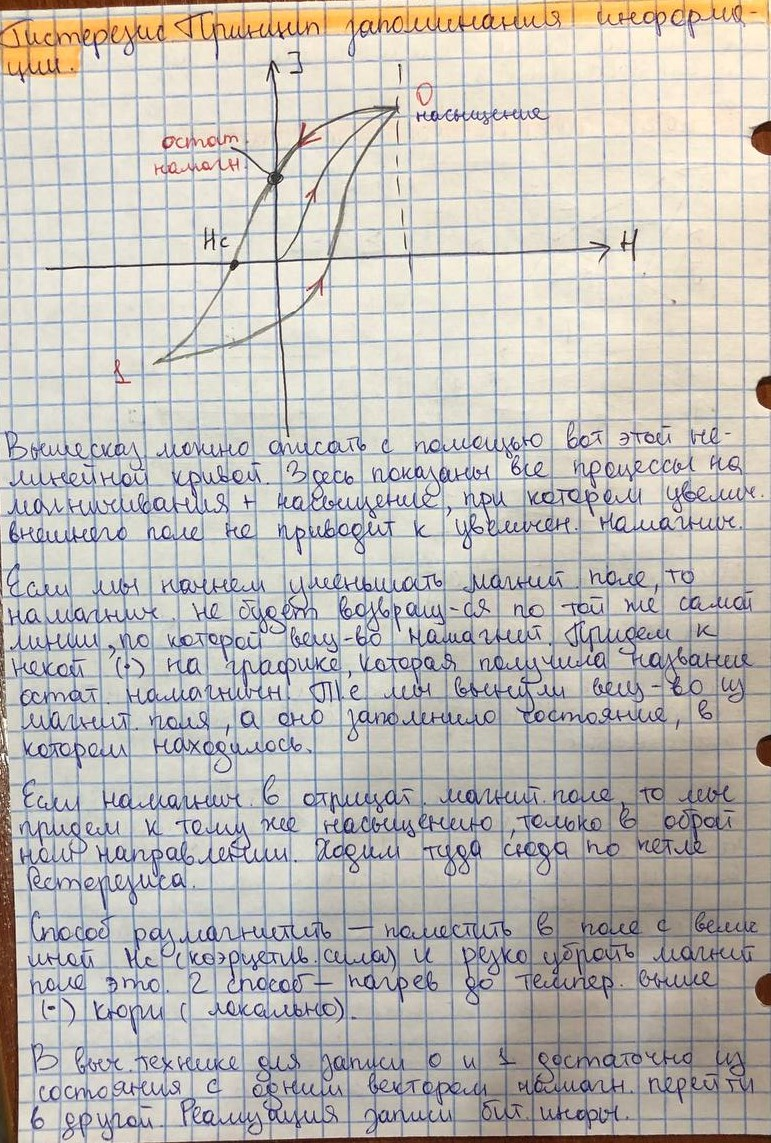 Гистерезис Принцип запоминания информа-
ции.
J
0
насыщение
остат.
намагн.
Hc
H
1
Вышесказ можно описать с помощью вот этой не-
линейной кривой. Здесь показаны все процессы на
магничивания + насыщение, при котором увелич.
внешнего поле не приводит к увеличен. намагнич.
Если мы начнем уменьшать магнит поле, то
намагнич. не будет возвращ-ся по той же самой
линии, по которой вещ-во намагнит. Придем к
некой (•) на графике, которая получила название
остат. намагничен! Т.е мы вынули вещ-во из
магнит. поля, а оно запомнило состояние, в
котором находилось.
Если намагнич. в отрицат. магнит. поле, то мы
придем к тому же насыщению, только в обрат
ном направлении. Ходим туда сюда по петле
Гестерезиса.
Способ размагнитить — поместить в поле с велич
иной Hc (коэрцетив. сила) и резко убрать магнит
поле это. 2 способ – нагрев до темпер. выше
(•) Кюри ( локально).
В выч. технике для записи 0 и 1 достаточно из
состояния с одним вектором намагн. перейти
в другой. Реализация записи бит. информ.